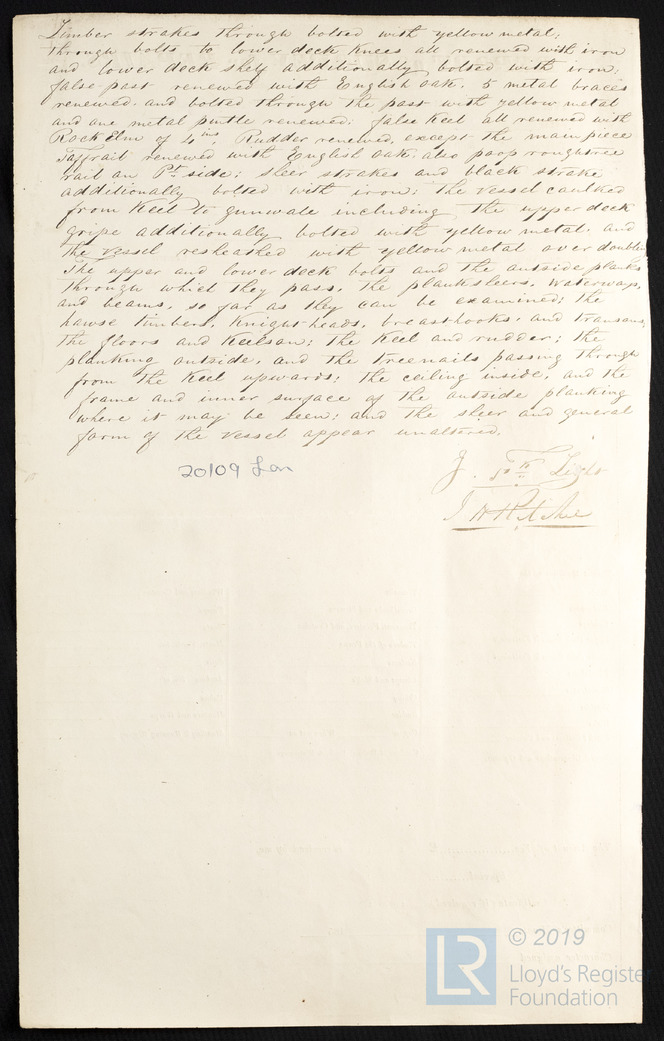 Limber strakes through bolted with yellow metal;
through bolts to lower deck knees all renewed with iron
and lower deck shelf additionally bolted with iron.
false post renewed with English oak. 5 metal braces
renewed. and bolted through the post with yellow metal
and one metal pintle renewed: false keel all renewed with
Rock Elm of 4 ins, Rudder renewed, except the main piece
Taffrail renewed with English oak. also poop roughtree
rail on Pt. side; sheer strakes and black strake
additionally bolted with iron; The vessel caulked
from keel to gunwale including the upper deck
gripe additionally bolted with yellow metal. and
the vessel resheathed with yellow metal over doubling
The upper and lower deck bolts and the outside planks
through which they pass, the planksheers, waterways,
and beams, so far as they can be examined; the
hawse timbers, Knight-heads, breasthooks, and transoms,
the floors and keelson; the keel and rudder; the
planking outside, and the treenails passing through
from the keel upwards; the ceiling inside, and the
frame and inner surface of the outside planking
where it may be seen; and the sheer and general
form of the vessel appear unaltered.
20109 Lon
J. Light
© 2019
LR Lloyd's Register
Foundation